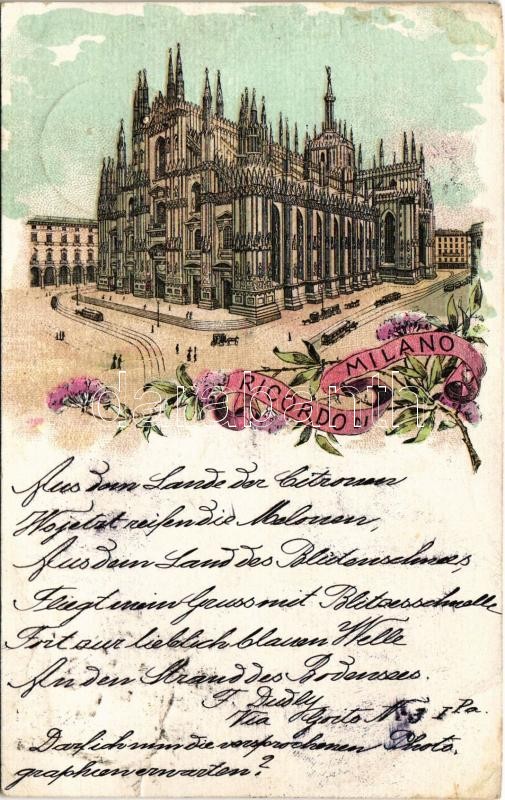 RICORDO DI MILANO
darabanth
Aus dem Lande der Citronen
Wo jetzt reifen die Melonen,
Aus dem Land des Blütenschnees,
Fliegt mein Gruss mit Blitzesschnelle
Fort zur lieblich blauen Welle
An den Strand des Bodensees.
F. Dudly
Via Goito N. 3 I Pa.
Darf ich nun die versprochenen Photo,
graphien erwarten?